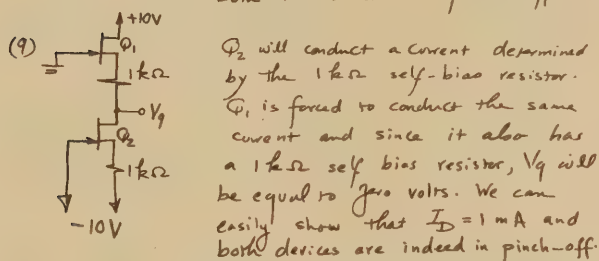 (9)
+10V
Q1
1kΩ
V9
Q2
1kΩ
-10V
Q2 will conduct a current determined
by the 1kΩ self-bias resistor.
Q1 is forced to conduct the same
current and since it also has
a 1kΩ self bias resistor, V9 will
be equal to zero volts. We can
easily show that ID = 1 mA and
both devices are indeed in pinch-off.